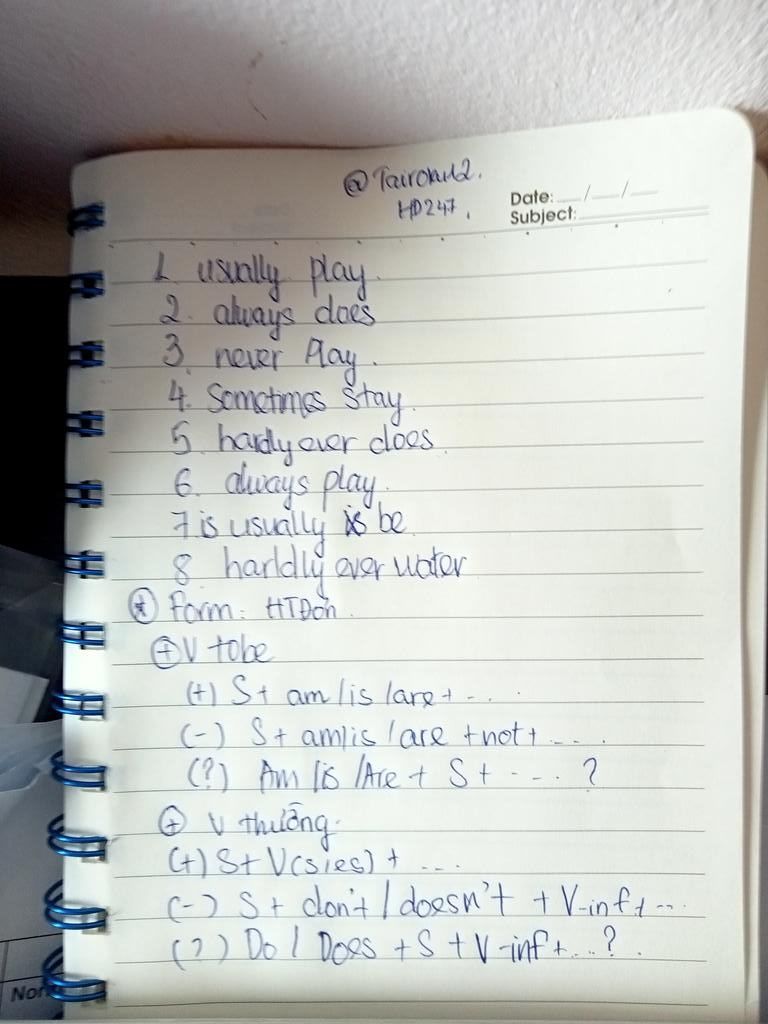 @Tairohu2.
HD247.
Date: __/__/__
Subject:
1. usually play.
2. always does
3. never Play.
4. Sometimes stay.
5. hardly ever does.
6. always play.
7 is usually is be
8 harldly ever water
* Form: HTĐơn.
+ V tobe
(+) S+ am/is/are+ ....
(-) S+ am/is/are +not+ ....
(?) Am/is/Are + S + .... ?
+ V thường.
(+) S+ V(s/es) + ....
(-) S + don't/doesn't + V-inf + ...
(?) Do / Does + S + V-inf + ...?
Nor